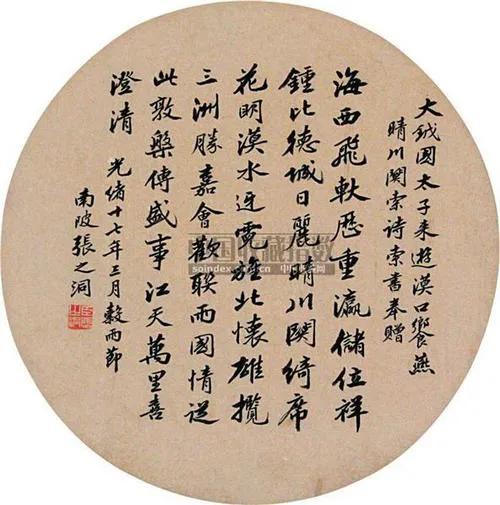 大鉞國太子来遊漢口饗燕
晴川閣索诗索書奉贈
海西飛軼歷重瀛儲位祥
鍾比德城日麗晴川開綺席
花明漢水迓霓旌壯懷雄攬
三洲勝嘉會歡聯兩國情從
此敦槃傳盛事江天萬里喜
澄清 光緒十七年三月穀雨節
南陂張之洞